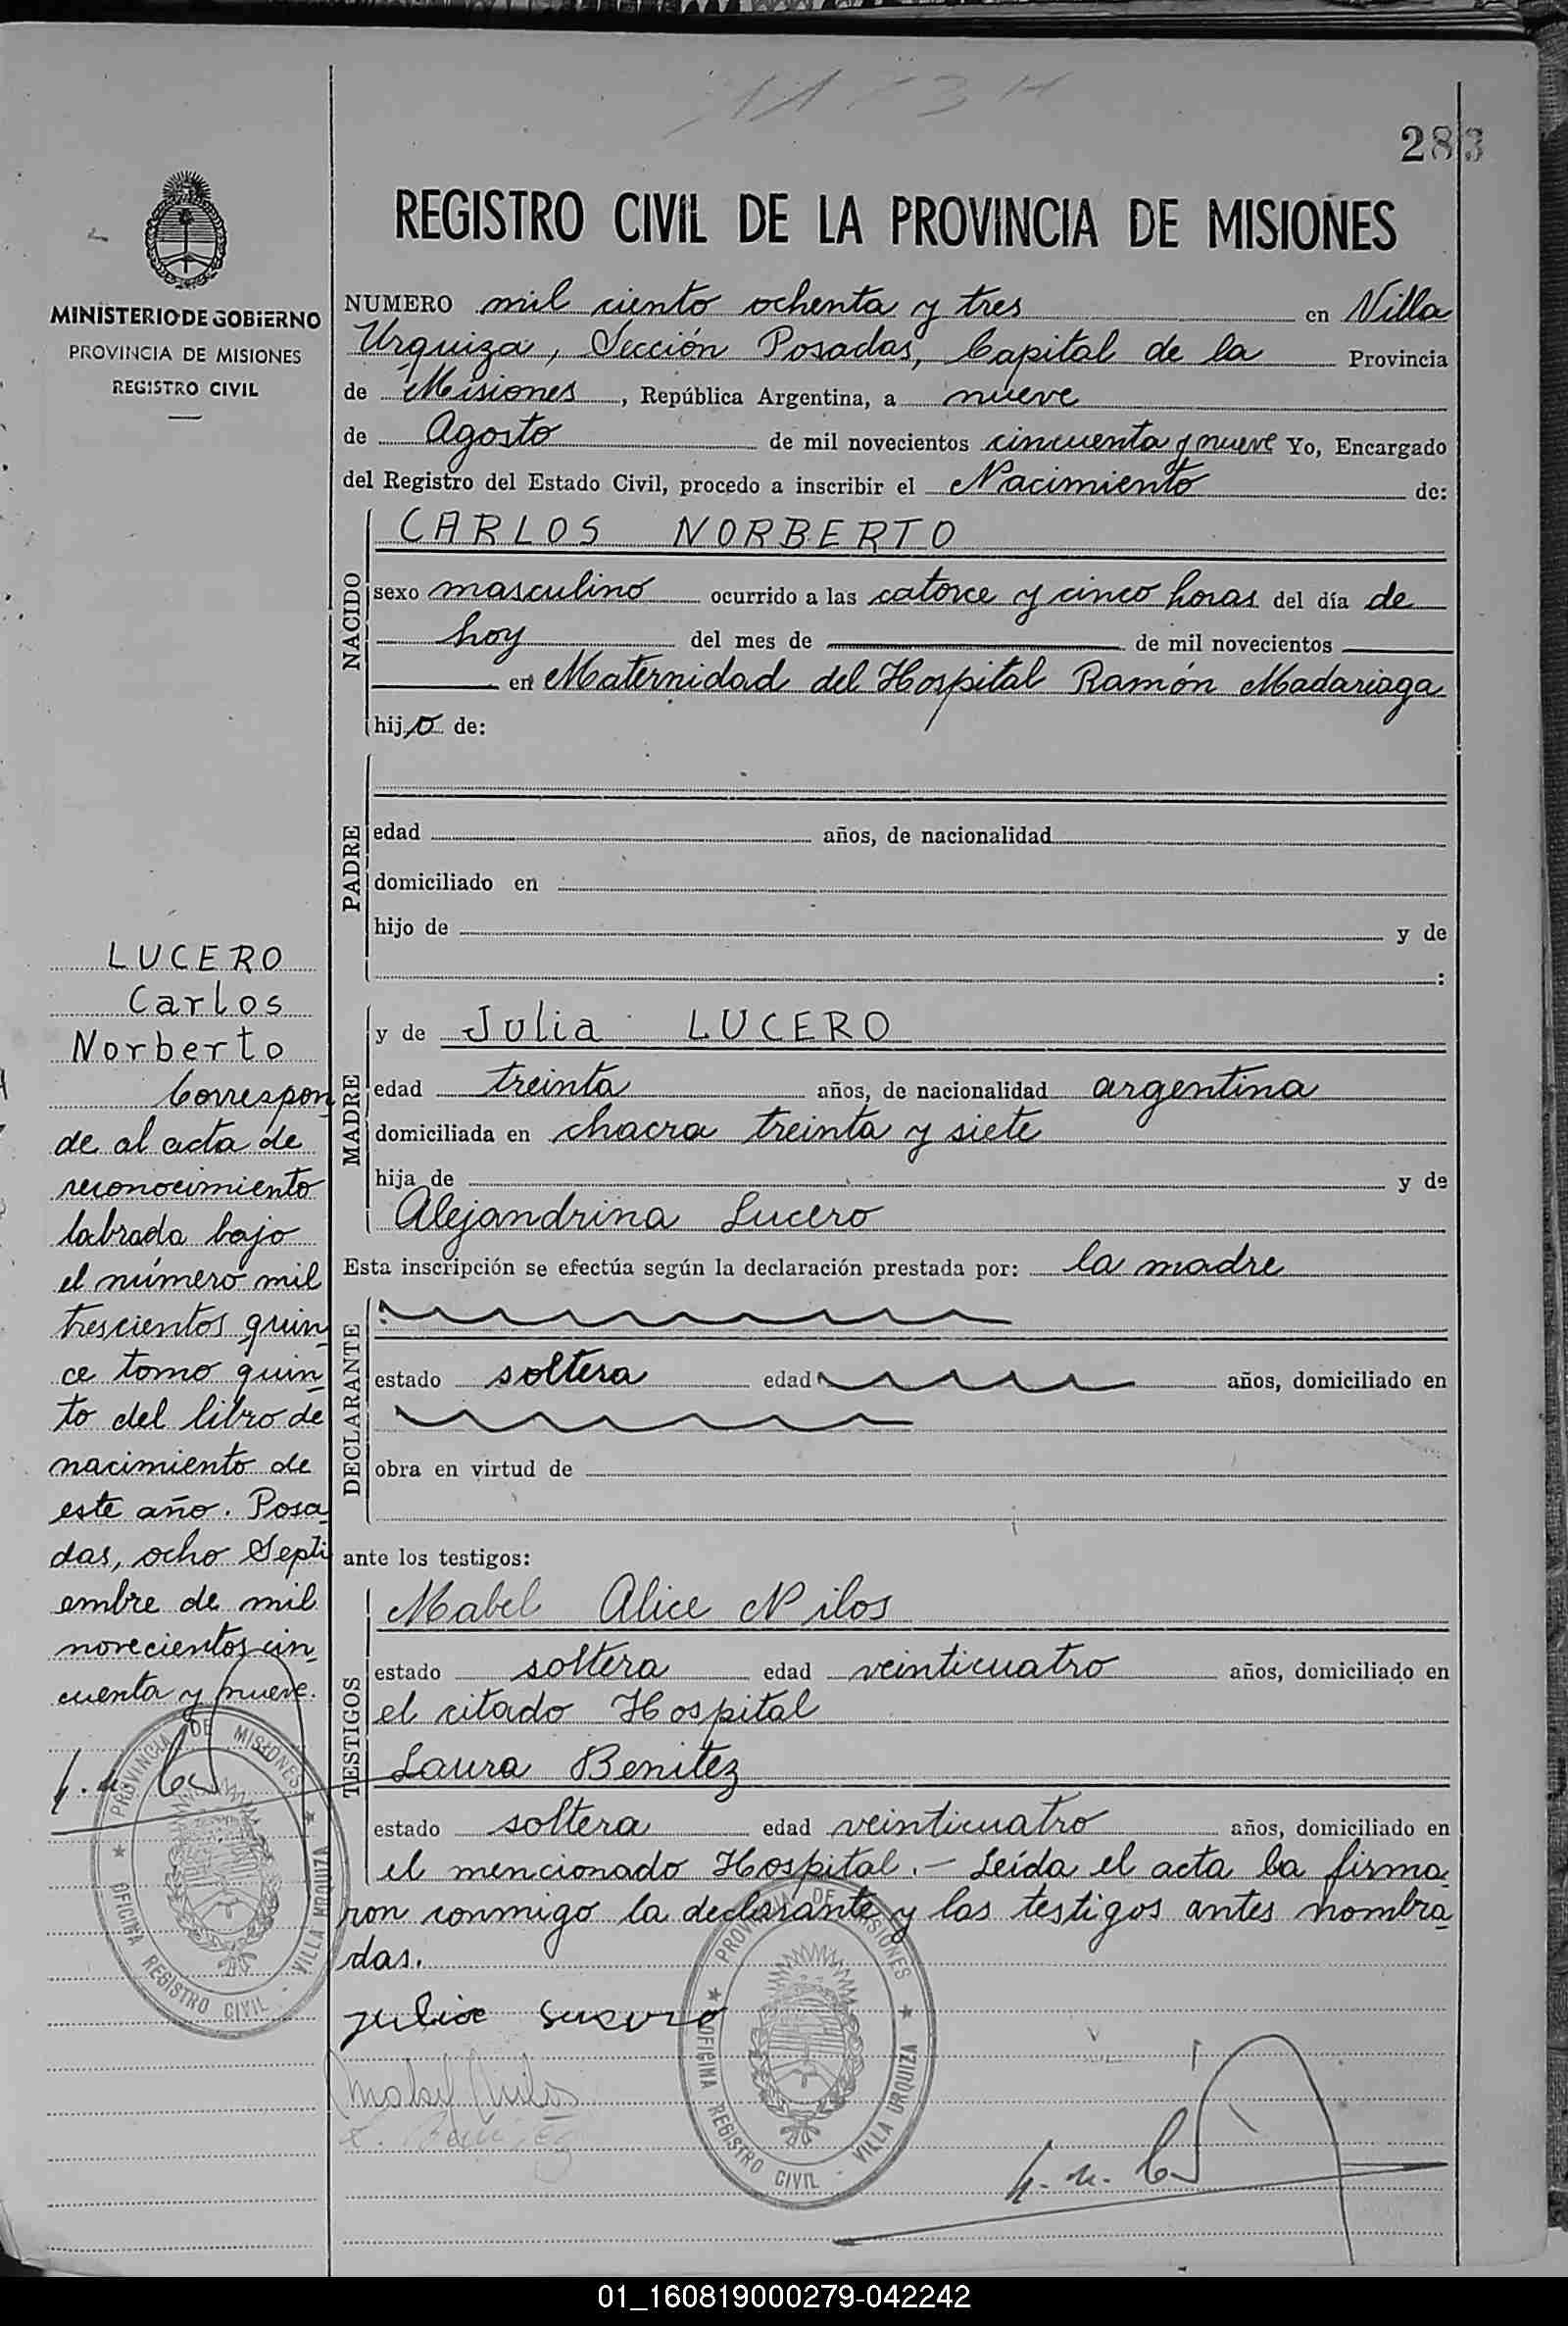 283
REGISTRO CIVIL DE LA PROVINCIA DE MISIONES
MINISTERIO DE GOBIERNO
PROVINCIA DE MISIONES
REGISTRO CIVIL
NUMERO mil ciento ochenta y tres en Villa
Urquiza, Sección Posadas, Capital de la Provincia
de Misiones, República Argentina, a nueve
de Agosto de mil novecientos cincuenta y nueve Yo, Encargado
del Registro del Estado Civil, procedo a inscribir el Nacimiento de:
NACIDO
CARLOS NORBERTO
sexo masculino ocurrido a las catorce y cinco horas del día de
hoy del mes de de mil novecientos
en Maternidad del Hospital Ramón Madariaga
hijo de:
PADRE
edad años, de nacionalidad
domiciliado en
hijo de y de
:
MADRE
y de Julia LUCERO
edad treinta años, de nacionalidad argentina
domiciliada en chacra treinta y siete
hija de y de
Alejandrina Lucero
Esta inscripción se efectúa según la declaración prestada por: la madre
DECLARANTE
estado soltera edad años, domiciliado en
obra en virtud de
ante los testigos:
TESTIGOS
Mabel Alice Nilos
estado soltera edad veinticuatro años, domiciliado en
el citado Hospital
Laura Benitez
estado soltera edad veinticuatro años, domiciliado en
el mencionado Hospital.- Leída el acta la firma
ron conmigo la declarante y las testigos antes nombra-
das.
Julia Lucero
Mabel Nilos
L. Benitez
PROVINCIA DE MISIONES
OFICINA REGISTRO CIVIL - VILLA URQUIZA
LUCERO
Carlos
Norberto
Correspon
de al acta de
reconocimiento
labrada bajo
el número mil
trescientos quin-
ce tomo quin-
to del libro de
nacimiento de
este año. Posa-
das, ocho Septi
embre de mil
novecientos cin-
cuenta y nueve.
PROVINCIA DE MISIONES
OFICINA REGISTRO CIVIL - VILLA URQUIZA
01_160819000279-042242